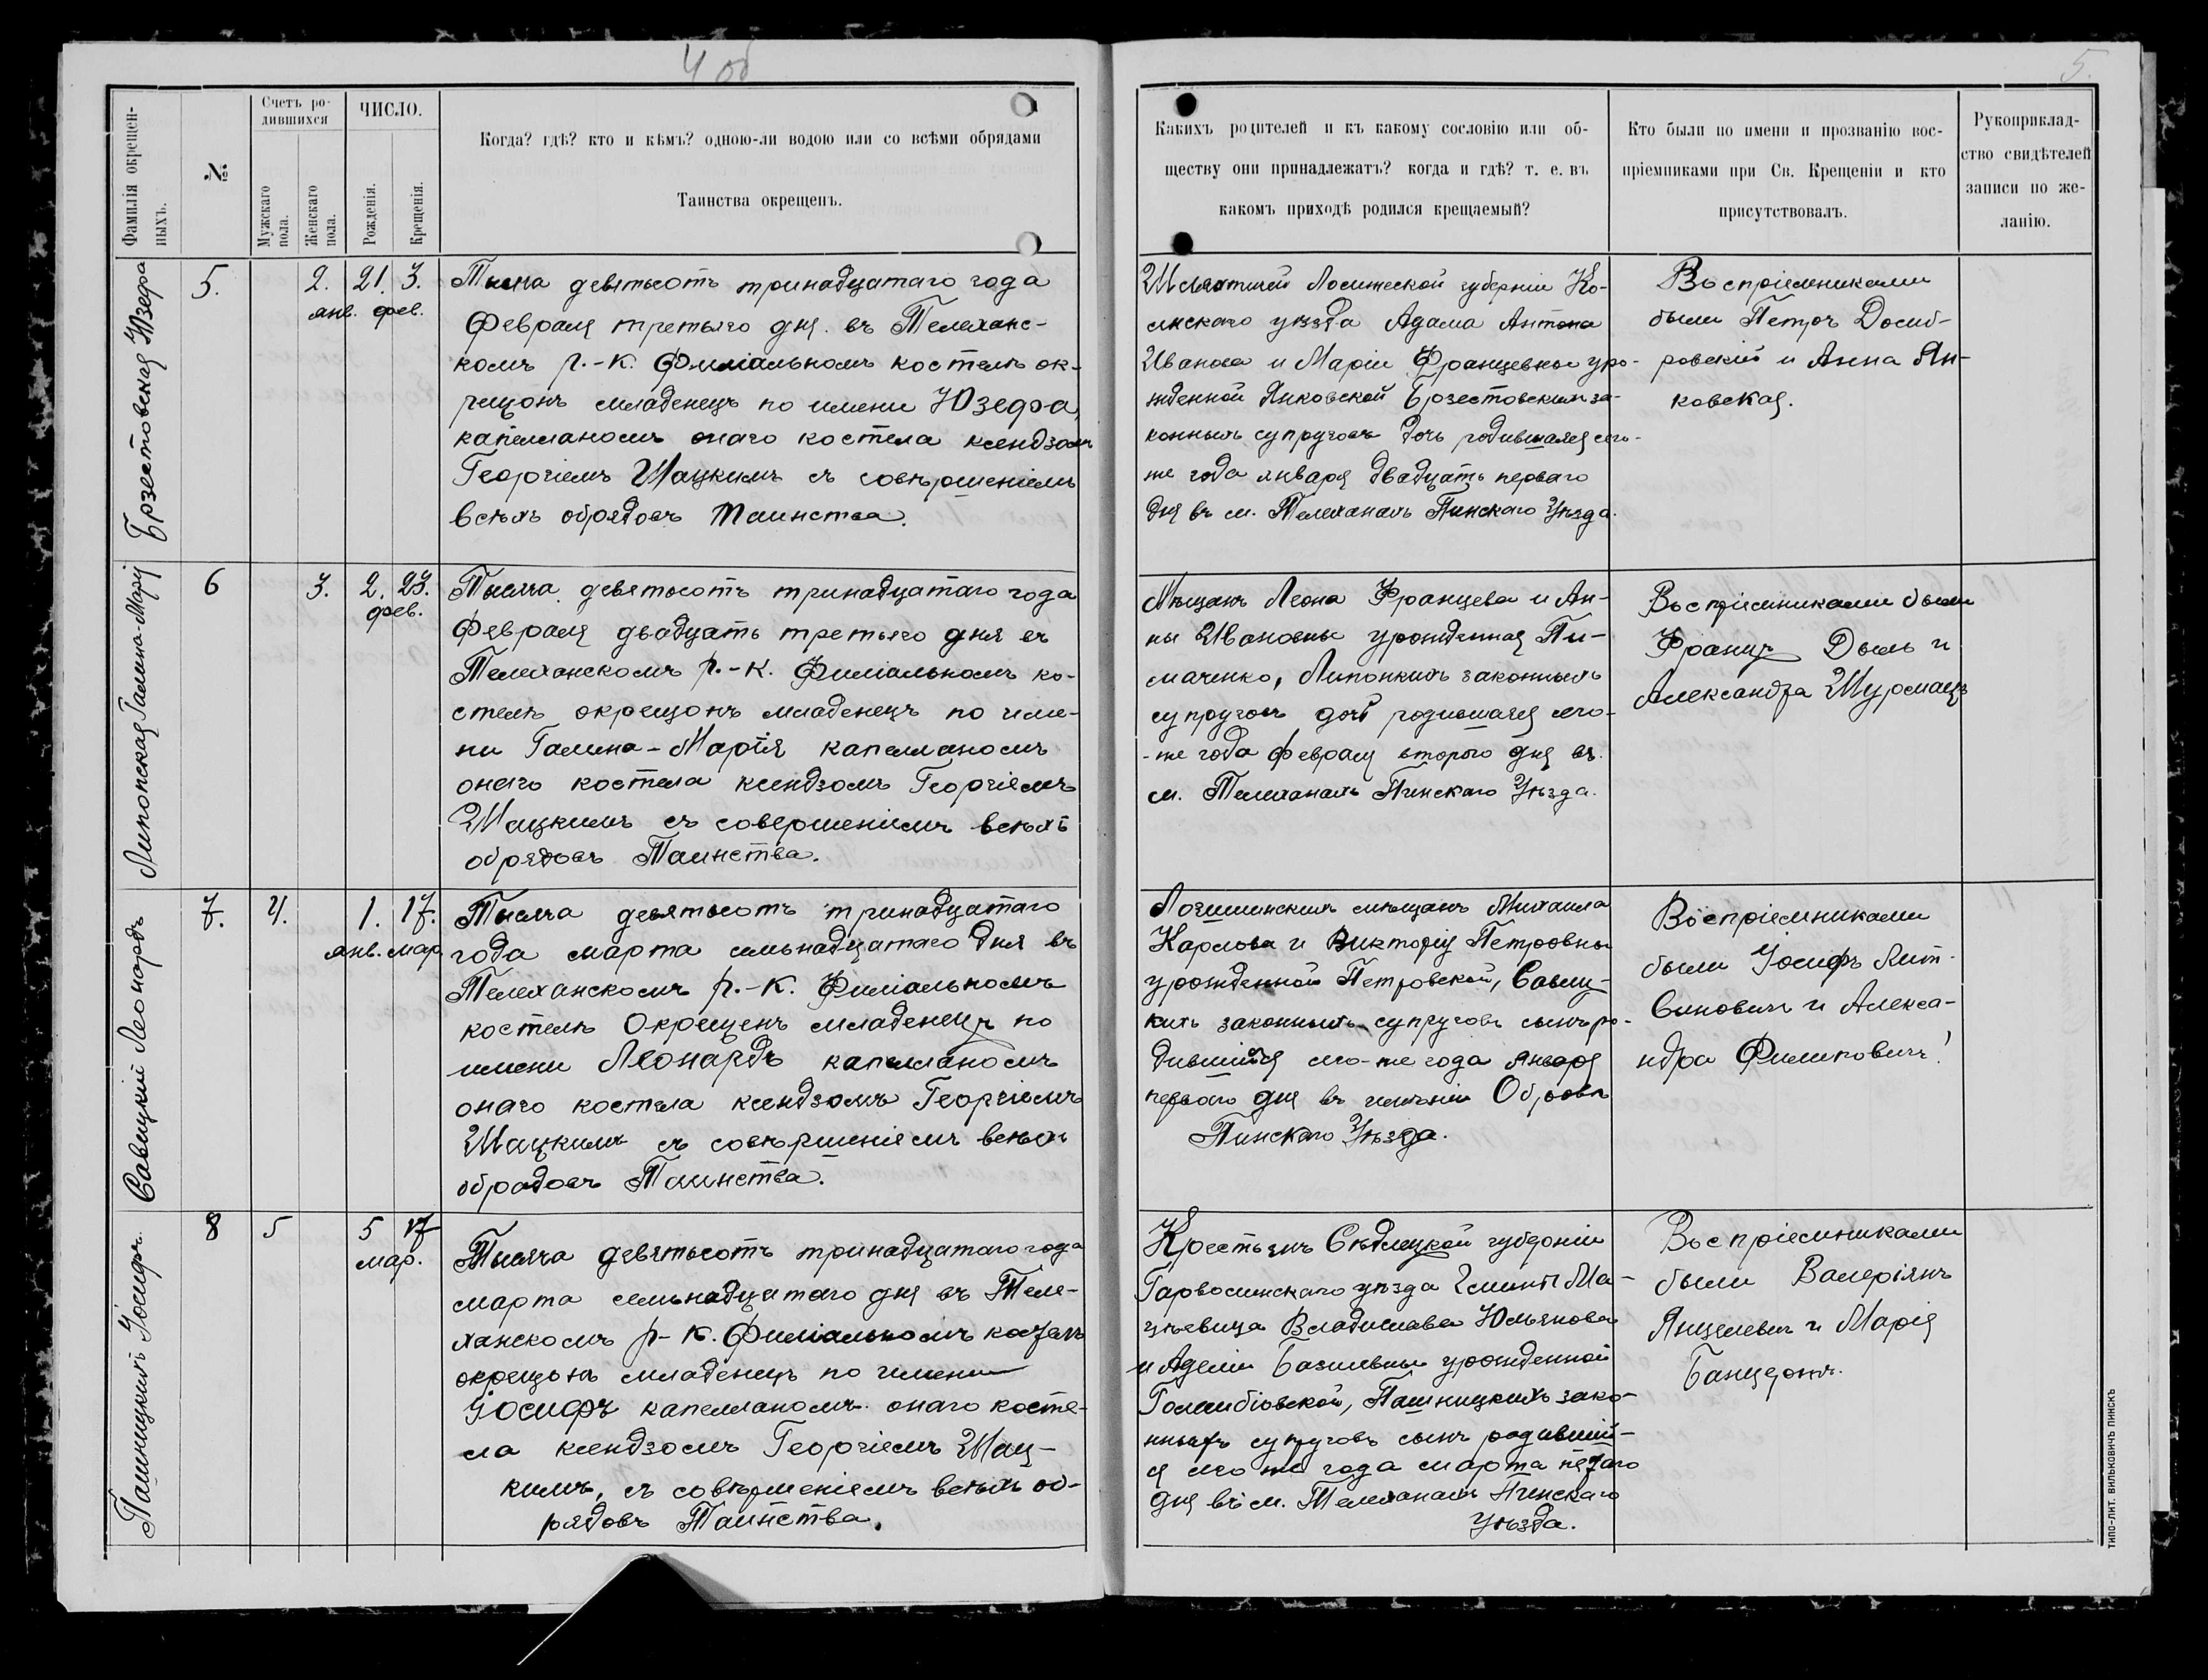 4 об
5.
Фамилія окрещен-
ныхъ.
№
Счетъ ро-
дившихся
Мужскаго
пола.
Женскаго
пола.
ЧИСЛО.
Рожденія.
Крещенія.
Когда? гдѣ? кто и кѣмъ? одною-ли водою или со всѣми обрядами
Таинства окрещенъ.
Какихъ родителей и къ какому сословію или об-
ществу они принадлежатъ? когда и гдѣ? т. е. въ
какомъ приходѣ родился крещаемый?
Кто были по имени и прозванію вос-
пріемниками при Св. Крещеніи и кто
присутствовалъ.
Рукоприклад-
ство свидѣтелей
записи по же-
ланію.
Брзестовская Юзефа
5.
2.
21. 3.
янв. фев.
Тысяча девятьсотъ тринадцатаго года
Февраля третьяго дня въ Телеханс-
комъ р.-к. Филіальномъ костелѣ ок-
рещонъ младенецъ по имени Юзефа,
капелланомъ онаго костела ксендзомъ
Георгіемъ Шацкимъ съ совѣршеніемъ
всѣхъ обрядовъ Таинства.
Шляхтичей Ломжеской губерніи Ко-
лнскаго уѣзда Адама Антона
Иванова и Маріи Францевны уро-
жденной Янковской Брзестовскихъ за-
конныхъ супруговъ дочь родившаяся сего-
же года января двадцать перваго
дня въ м. Телеханахъ Пинскаго Уѣзда.
Воспріемниками
были Петръ Домб-
ровскій и Анна Ян-
ковская.
Липопская Галина-Марія
6
3.
2. 23.
фев.
Тысяча девятьсотъ тринадцатаго года
Февраля двадцать третьяго дня въ
Телеханскомъ р.-к. Филіальномъ ко-
стелѣ окрещонъ младенецъ по име-
ни Галина-Марія капелланомъ
онаго костела ксендзомъ Георгіемъ
Шацкимъ съ совершеніемъ всѣхъ
обрядовъ Таинства.
Мѣщанъ Леона Францева и Ан-
ны Ивановны урожденная Пи-
маченко, законныхъ
супруговъ дочь родившаяся сего-
-же года февраля второго дня въ
м. Телеханахъ Пинскаго Уѣзда.
Воспріемниками были
Францъ Дыль и
Александра
Савицкій Леонардъ
7.
4.
1. 17.
янв. мар.
Тысяча девятьсотъ тринадцатаго
года марта семьнадцатаго дня въ
Телеханскомъ р.-к. Филіальномъ
костелѣ Окрещенъ младенецъ по
имени Леонардъ капелланомъ
онаго костела ксендзомъ Георгіемъ
Шацкимъ съ совѣршеніемъ всѣхъ
обрядовъ Таинства.
Логишинскихъ мѣщанъ Михаила
Карлова и Викторіи Петровны
урожденной Петровской, Савиц-
кихъ законныхъ супруговъ сынъ ро-
дившійся сего-же года Января
перваго дня въ имѣніи Обровъ
Пинскаго Уѣзда.
Воспріемниками
были Іосифъ Лит-
виновичъ и Алекса-
ндра Филиповичъ
Пашницкихъ Іосифъ.
8
5
5 17
мар.
Тысяча девятьсотъ тринадцатаго года
марта семьнадцатаго дня въ Теле-
ханскомъ р-к. Филіальномъ костелѣ
окрещонъ младенецъ по имени
Іосифъ капелланомъ онаго косте-
ла ксендзомъ Георгіемъ Шац-
кимъ, съ совѣршеніемъ всѣхъ об-
рядовъ Таинства.
Крестьянъ Сѣдлецкой губерніи
Гарволинскаго уѣзда гмины Ма-
цѣевица Владислава Юльянова
и Аделіи Базилевны урожденной
Голембіовской, Пашницкихъ зако-
нныхъ супруговъ сынъ родившій-
ся сего же года марта пятаго
дня въ м. Телеханахъ Пинскаго
Уѣзда.
Воспріемниками
были Валеріянъ
Янцелевичъ и Марія
ТИПО-ЛИТ. ВИЛЬКОВИЧЪ ПИНСКЪ